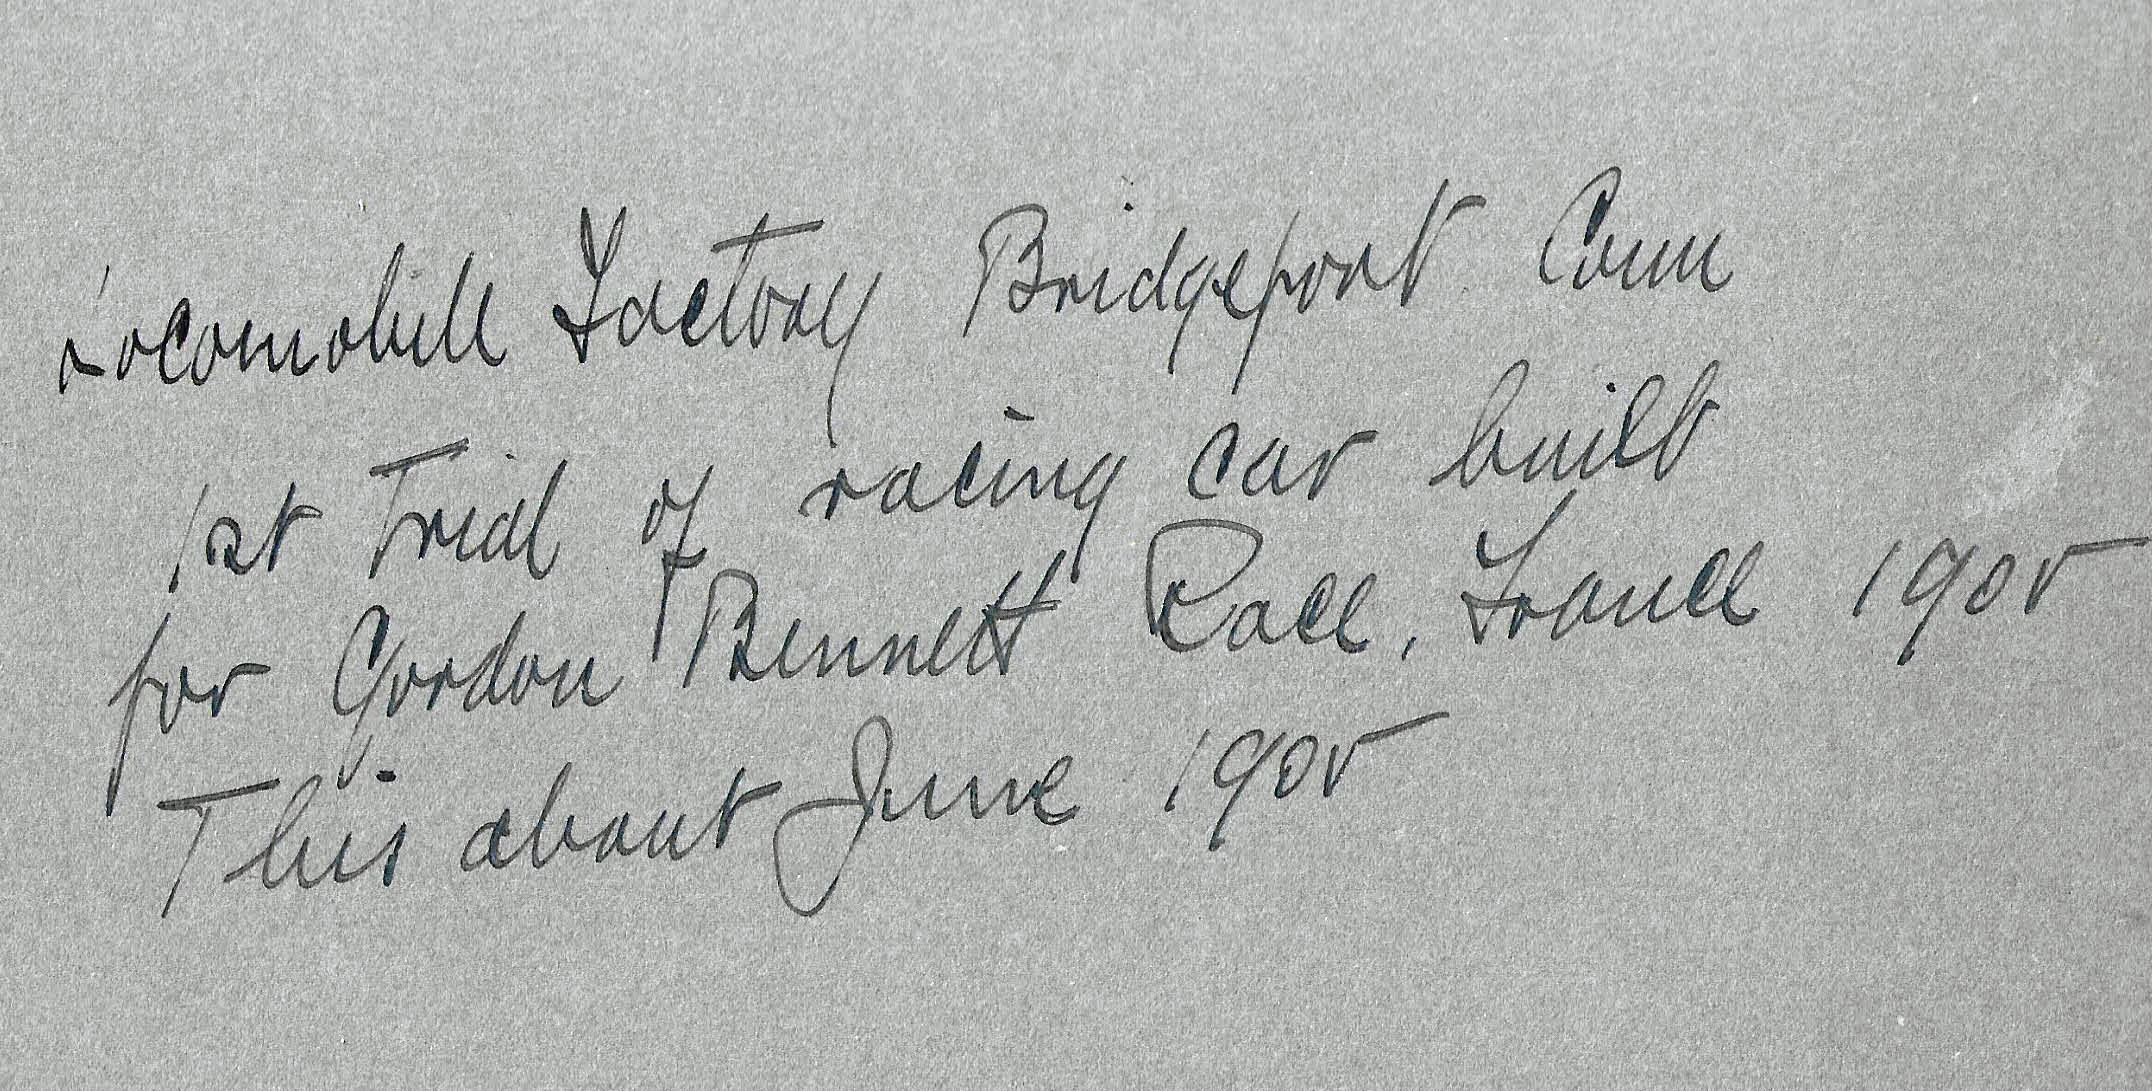 Locomobile Factory Bridgeport Conn
1st Trial of racing car built
for Gordon Bennett Race, France 1905
This about June 1905